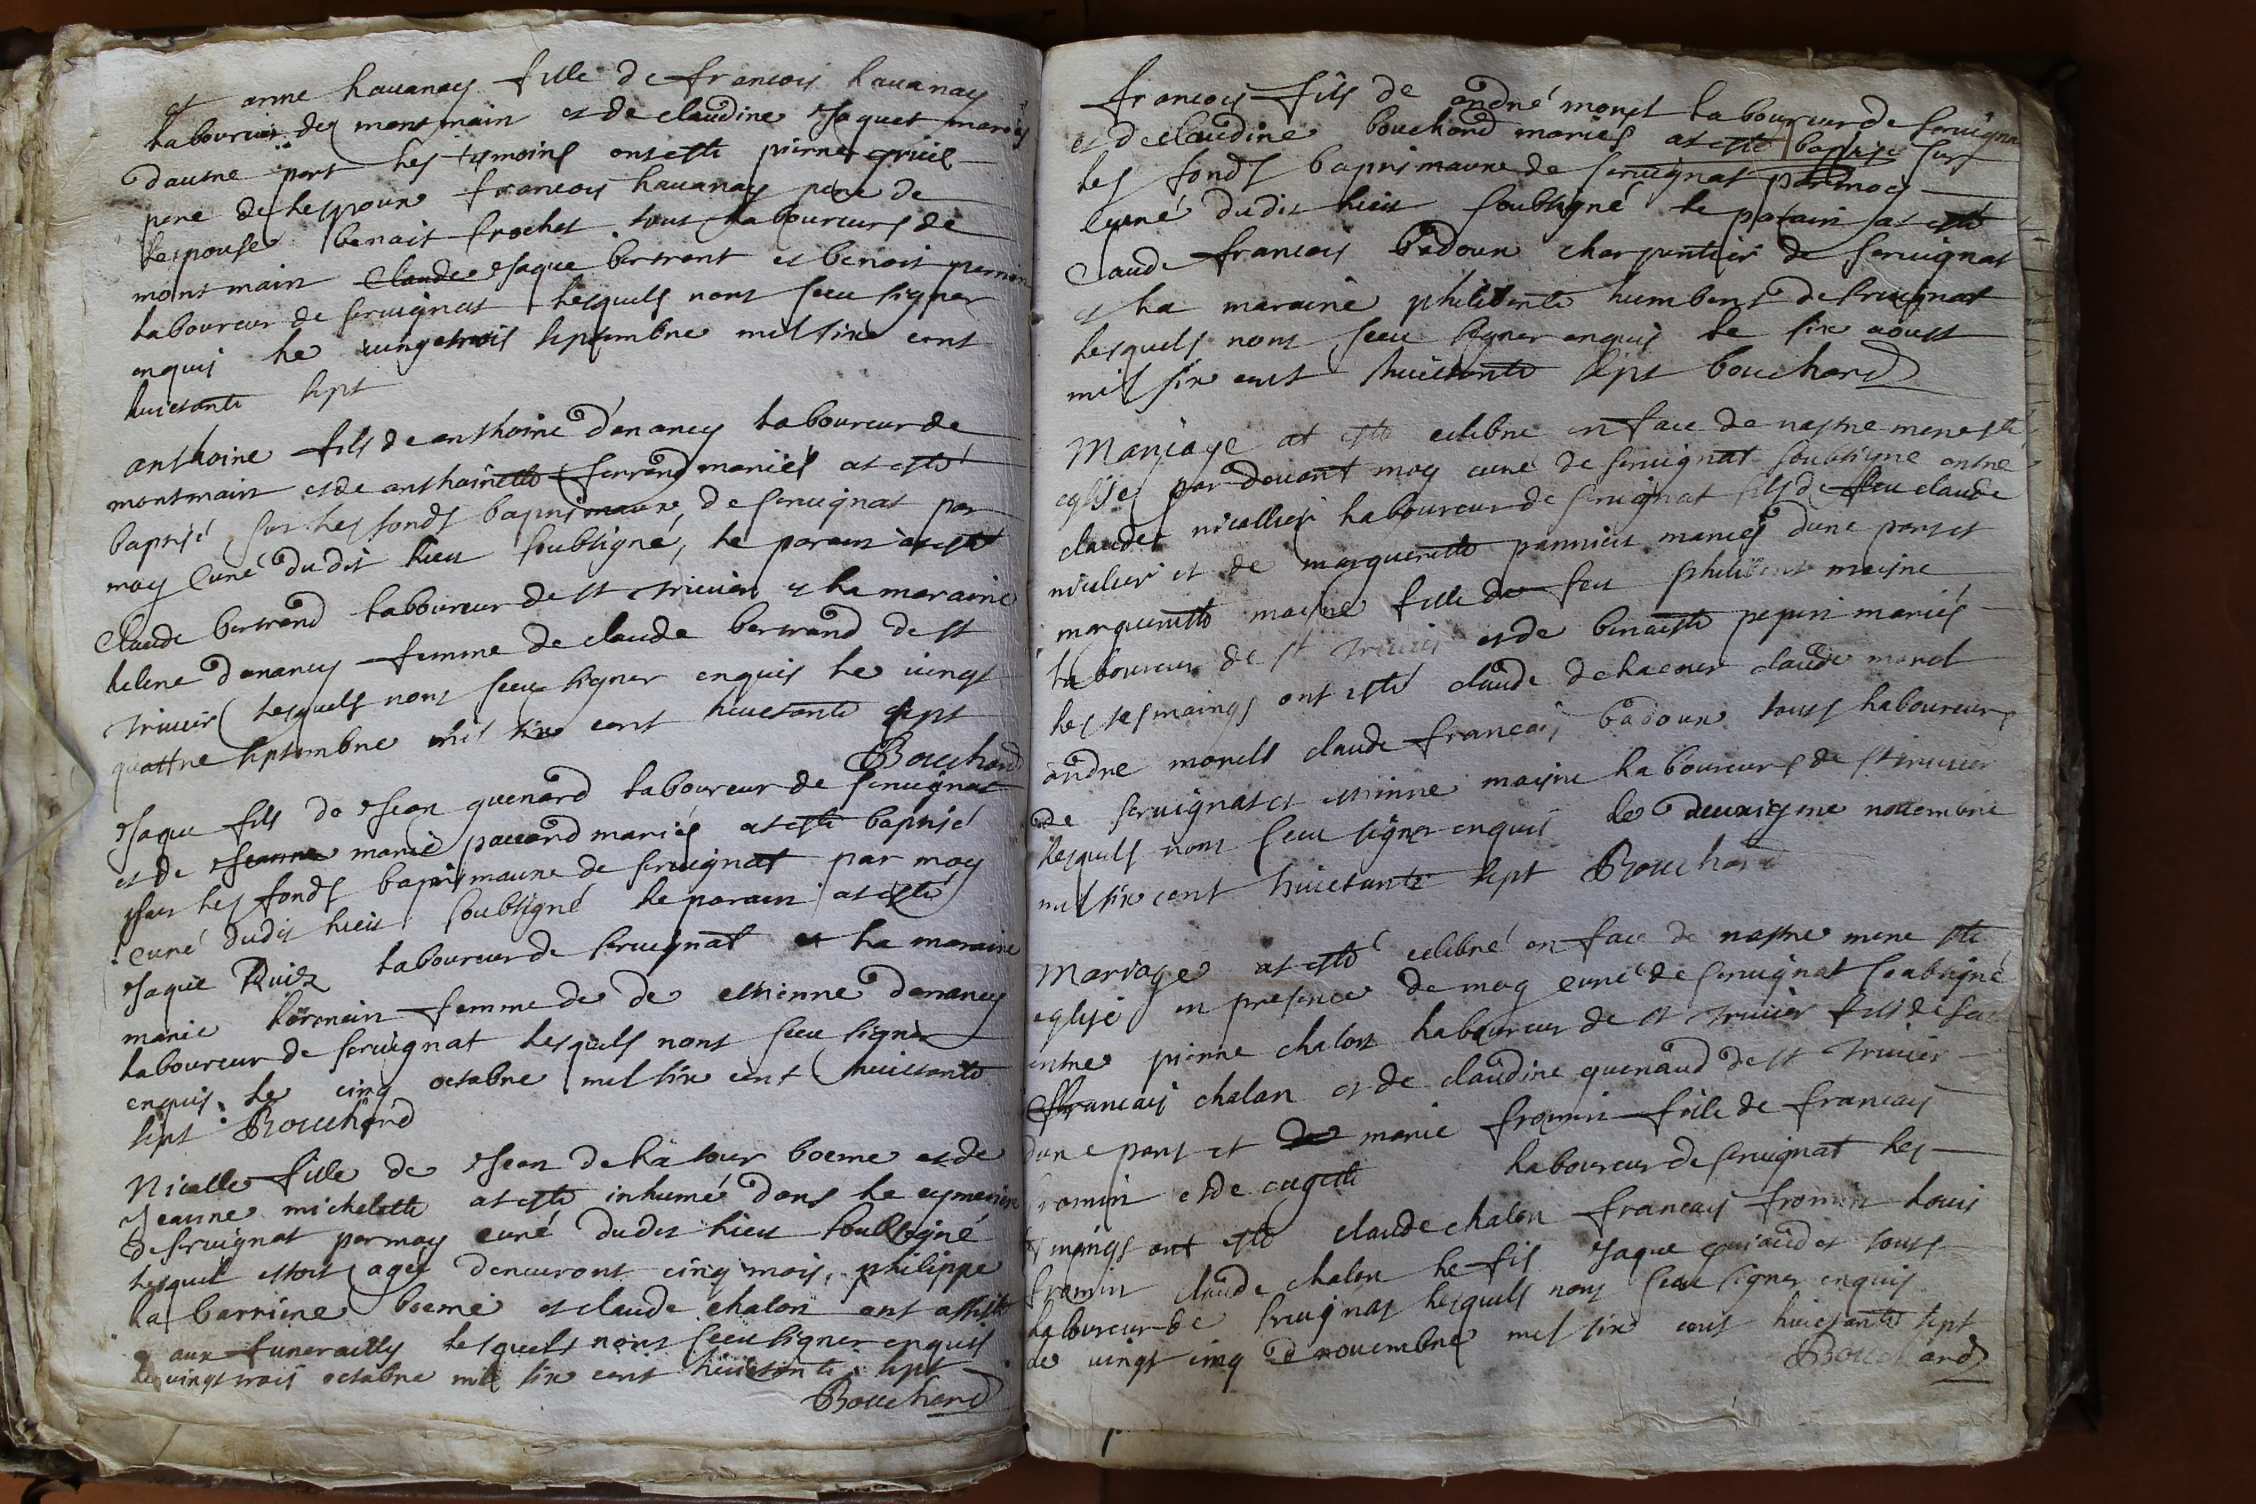 et anne havanay fille de francois havanay
laboureur de montmain et de claudine Jaquet mariés
dautre part les tesmoins ont esté pierre gruel
pere de lespoux francois havanay pere de
lespouse benait frochet tous laboureurs de
montmain Claude Jaque bertrant et benoit
laboureur de servignat lesquels nont sceu signer
enquis le vingetrois septembre mil six cent
huictante sept
anthoine fils de anthoine danancy laboureur de
montmain et de anthoinette ferrand mariés at esté
baptisé sur les fonds baptismaure de servignat par
moy curé dudit lieu soubsigné, le parain at esté
Claude bertrand laboureur de st trivier et la maraine
helene danancy femme de claude bertrand de st
trivier lesquels nont sceu signer enquis le vingt
quattre septembre mil six cent huictante sept
Bouchard
Jaque fils de Jean guenard laboureur de servignat
et de Jeanne marie pauand mariés at esté baptisé
sur les fonds baptismaure de servignat par moy
curé dudit lieu soubsigné le parain at esté
Jaque Ruiz laboureur de servignat et la maraine
marie femme de de estienne danancy
laboureur de servignat lesquels nont sceu signer
enquis le cinq octobre mil six cent huictante
sept Bouchard
Nicolle fille de Jean de la tour boeme et de
Jeanne michelette at esté inhumé dans le cymetiere
de servignat par moy curé dudit lieu soubsigné
lesquel estoit agée denviront cinq mois, philippe
la barriere boeme et claude chalon ont assisté
aux funerailly lesquels nont sceu signer enquis
le vingt trois octobre mil six cent huictante sept
Bouchard
francois fils de andré monet laboureur de servignat
et de claudine bouchard mariés at esté baptisé sur
les fonds baptismaure de servignat par moy
curé dudit lieu soubsigné le parain at esté
Claude francois badoux charpentier de servignat
et la maraine philiberte humbert de servignat
lesquels nont sceu signer enquis le six aoust
mil six cent huictante sept bouchard
Mariage at esté celibré en face de nostre mere ste
eglise par devant moy curé de servignat soubsigne entre
claude nicollier laboureur de servignat fils de feu claude
niculier et de margueritte pannier mariés dune part et
margueritte moisne fille de feu philibert moisne
laboureur de st trivier et de benoiste pepin mariés
les tesmoings ont esté claude delacour claude monet
andre monet claude francois badoux touts laboureurs
de servignat et estienne moisne laboureurs de st trivier
lesquels nont sceu signer enquis le deuxiesme novembre
mil six cent huictante sept Bouchard
Mariage at esté celibré en face de nostre mere ste
eglise en presence de moy curé de servignat soubsigné
entre pierre chalon laboureur de st trivier fils de feu
francois chalon et de claudine guenaud de st trivier
dune part et marie fromin fille de francois
fromin et de cugette laboureur de servignat les
moings ont esté claude chalon francois fromin louis
fromin claude chalon le fis Jaque et touts
laboureur de servignat lesquels nont sceu signer enquis
le vingt cinq de novembre mil six cent huictante sept
Bouchard